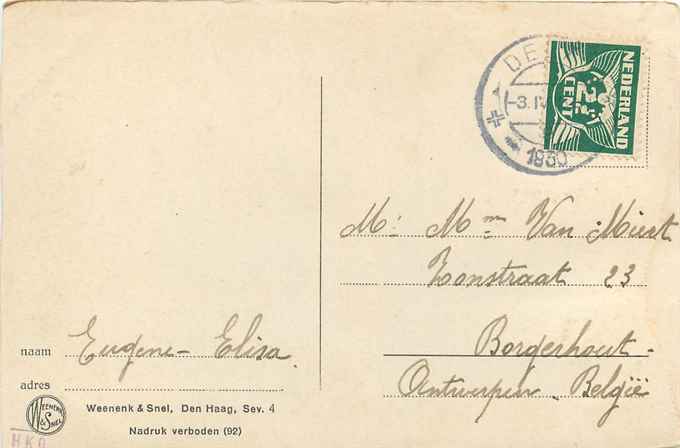 DE
-3.IV
1930
NEDERLAND
2½
CENT
M: Mm Van Mieet
Zonstraat 23
Borgerhout.
Antwerpen. België
naam Eugene - Elisa.
adres
WEENENK & SNEL
Weenenk & Snel, Den Haag, Sev. 4
Nadruk verboden (92)
HKA